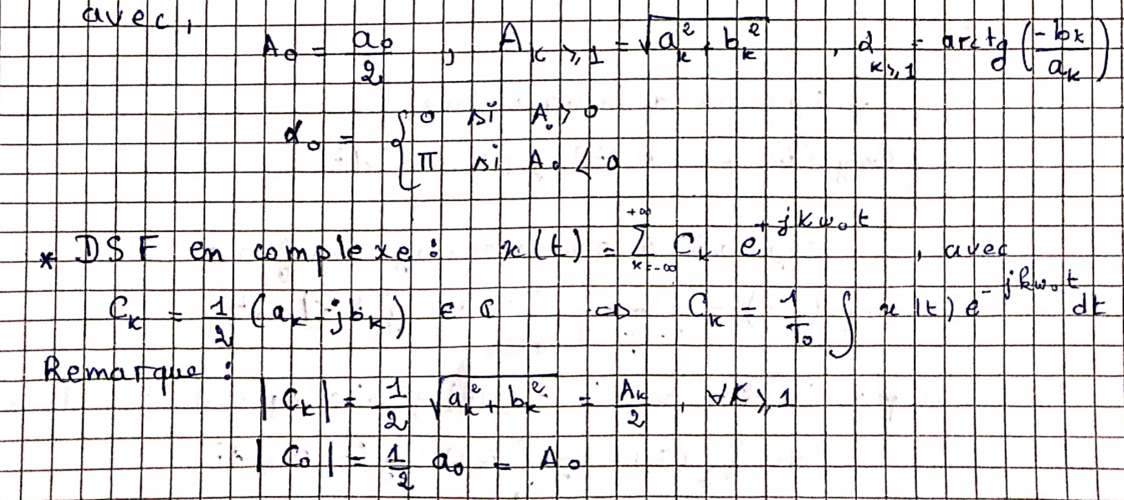 avec,
A₀ = a₀/2 , A_{k≥1} = √(a_k² + b_k²) , α_{k≥1} = arctg(-b_k/a_k)
α₀ = { 0 si A₀ > 0
π si A₀ < 0
* DSF en complexe : x(t) = Σ_{k=-∞}^{+∞} C_k e^{+jkω₀t} , avec
C_k = 1/2 (a_k - jb_k) ∈ ℂ ⇒ C_k = 1/T₀ ∫ x(t) e^{-jkω₀t} dt
Remarque :
|C_k| = 1/2 √(a_k² + b_k²) = A_k/2 , ∀k≥1
|C₀| = 1/2 a₀ = A₀